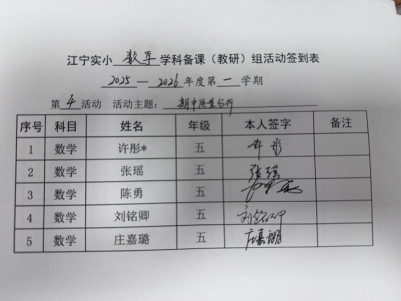 江宁实小 数学 学科备课（教研）组活动签到表
2025 — 2026 年度第 一 学期
第 4 活动 活动主题： 期中质量分析
序号 科目 姓名 年级 本人签字 备注
1 数学 许彤* 五 许彤
2 数学 张瑶 五 张瑶
3 数学 陈勇 五
4 数学 刘铭卿 五 刘铭卿
5 数学 庄嘉璐 五 庄嘉璐